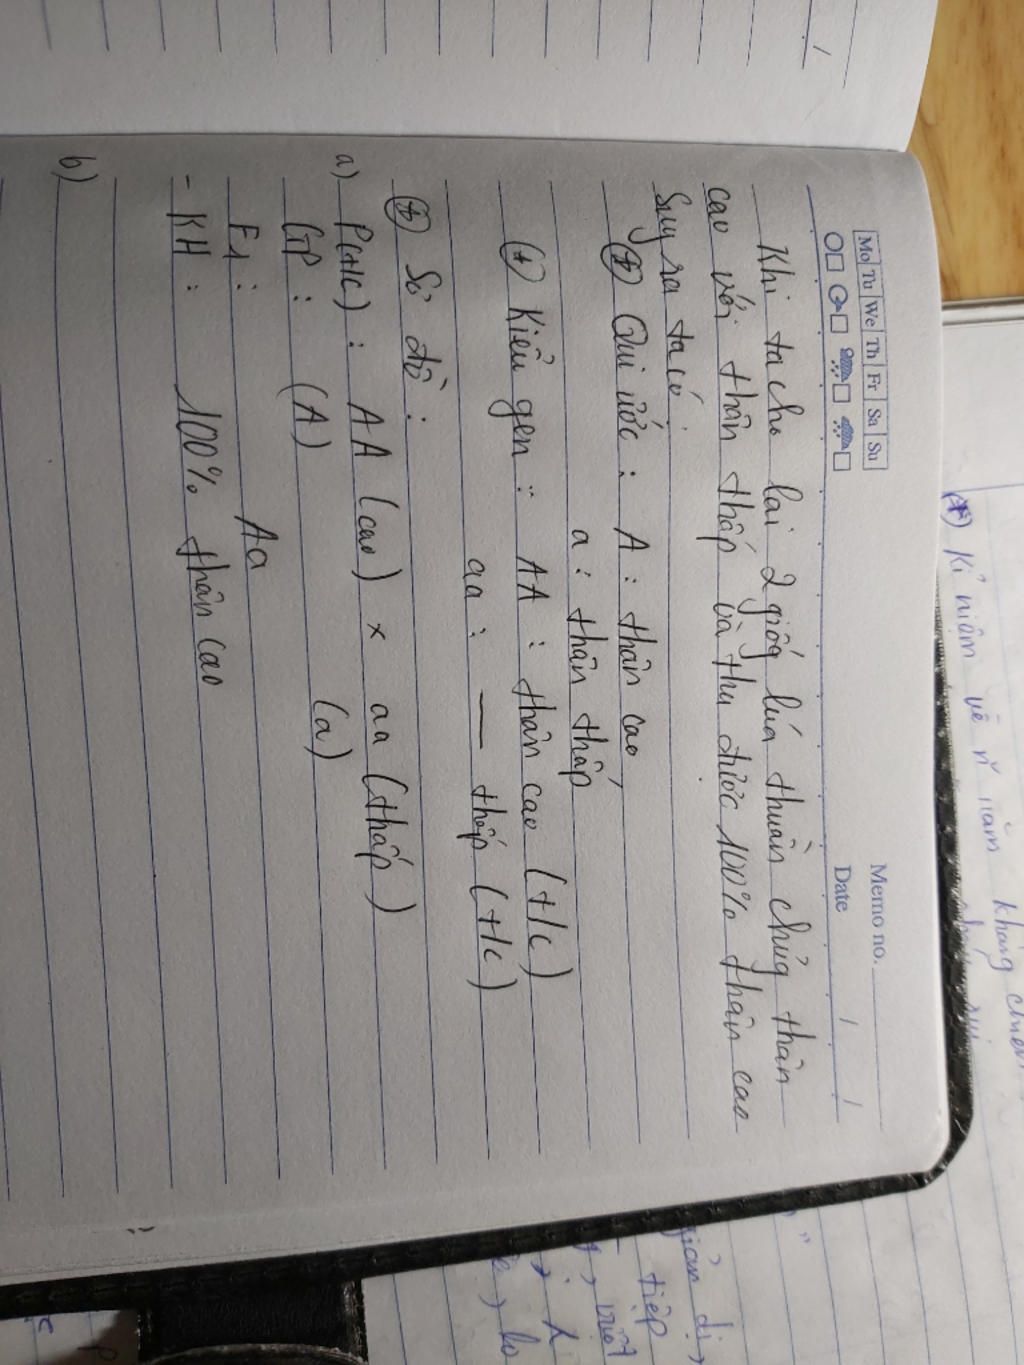 Memo no.
Mo Tu We Th Fr Sa Su
Date / /
Khi ta cho lai 2 giống lúa thuần chủng thân
cao với thân thấp và thu được 100% thân cao
Suy ra ta có
(+) Qui ước : A : thân cao
a : thân thấp
(+) Kiểu gen : AA : thân cao (t/c)
aa : — thấp (t/c)
(+) Sơ đồ :
a) P(t/c) : AA (cao) x aa (thấp)
GP : (A) (a)
F1 : Aa
- KH : 100% thân cao
b)
(+) Kỉ niệm về
giản dị,
tiếp